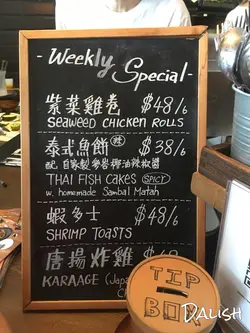 - Weekly Special -
紫菜雞卷 $48/6
SEAWEED CHICKEN ROLLS
泰式魚餅 辣 $38/6
配 自家製參峇椰油辣椒醬
THAI FISH CAKES SPICY
w. homemade Sambal Matah
蝦多士 $48/6
SHRIMP TOASTS
唐揚炸雞
KARAAGE (Japa
TIP
BOX
DALISH